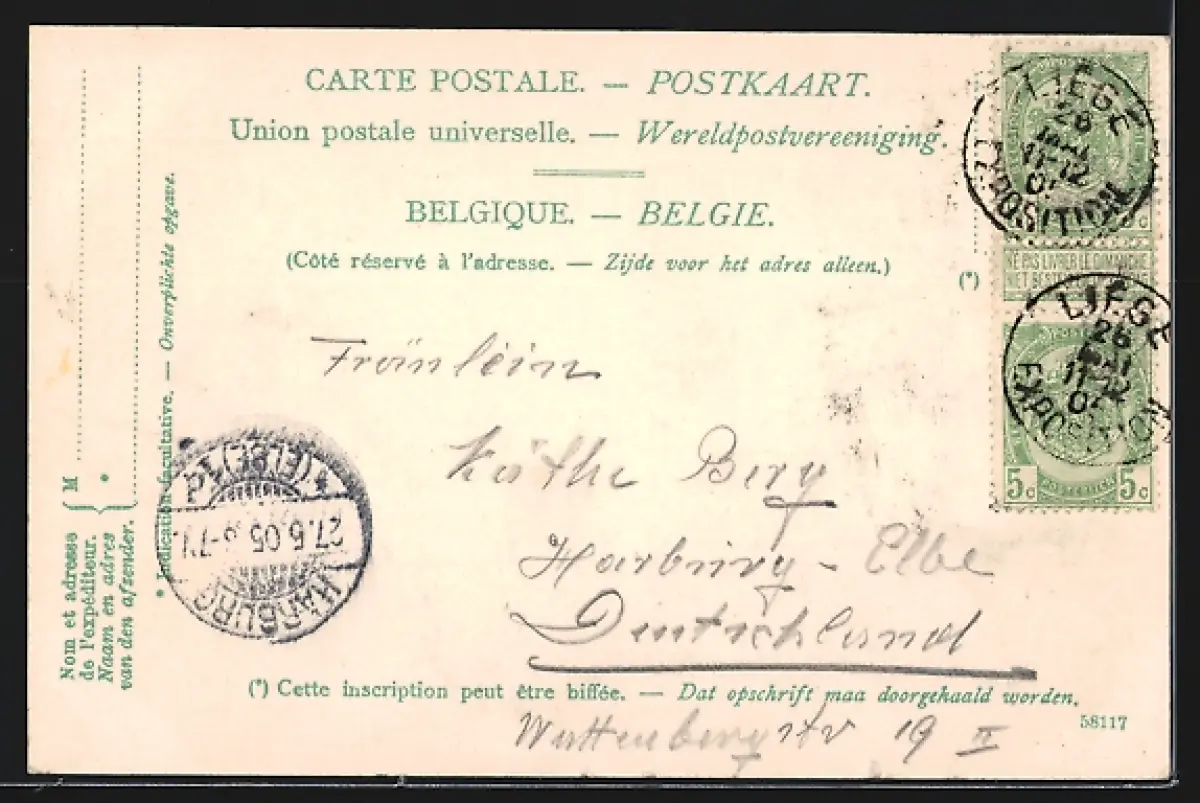 CARTE POSTALE. — POSTKAART.
Union postale universelle. — Wereldpostvereeniging.
BELGIQUE. — BELGIE.
(Côté réservé à l'adresse. — Zijde voor het adres alleen.)
(*)
LIÉGE
26
11-12
EXPOSITION
NE PAS LIVRER LE DIMANCHE
NIET BESTELLEN
LIÉGE
26
EXPOSITION
5c 5c
Fräulein
Käthe Berg
Harburg - Elbe
Deutschland
(*) Cette inscription peut être biffée. — Dat opschrift maa doorgehaald worden.
58117
19 II
M *
Nom et adresse
de l'expéditeur.
Naam en adres
van den afzender.
* Indication facultative. — Onverplichte opgave.
HARBURG
27.5.05
(ELBE) 1